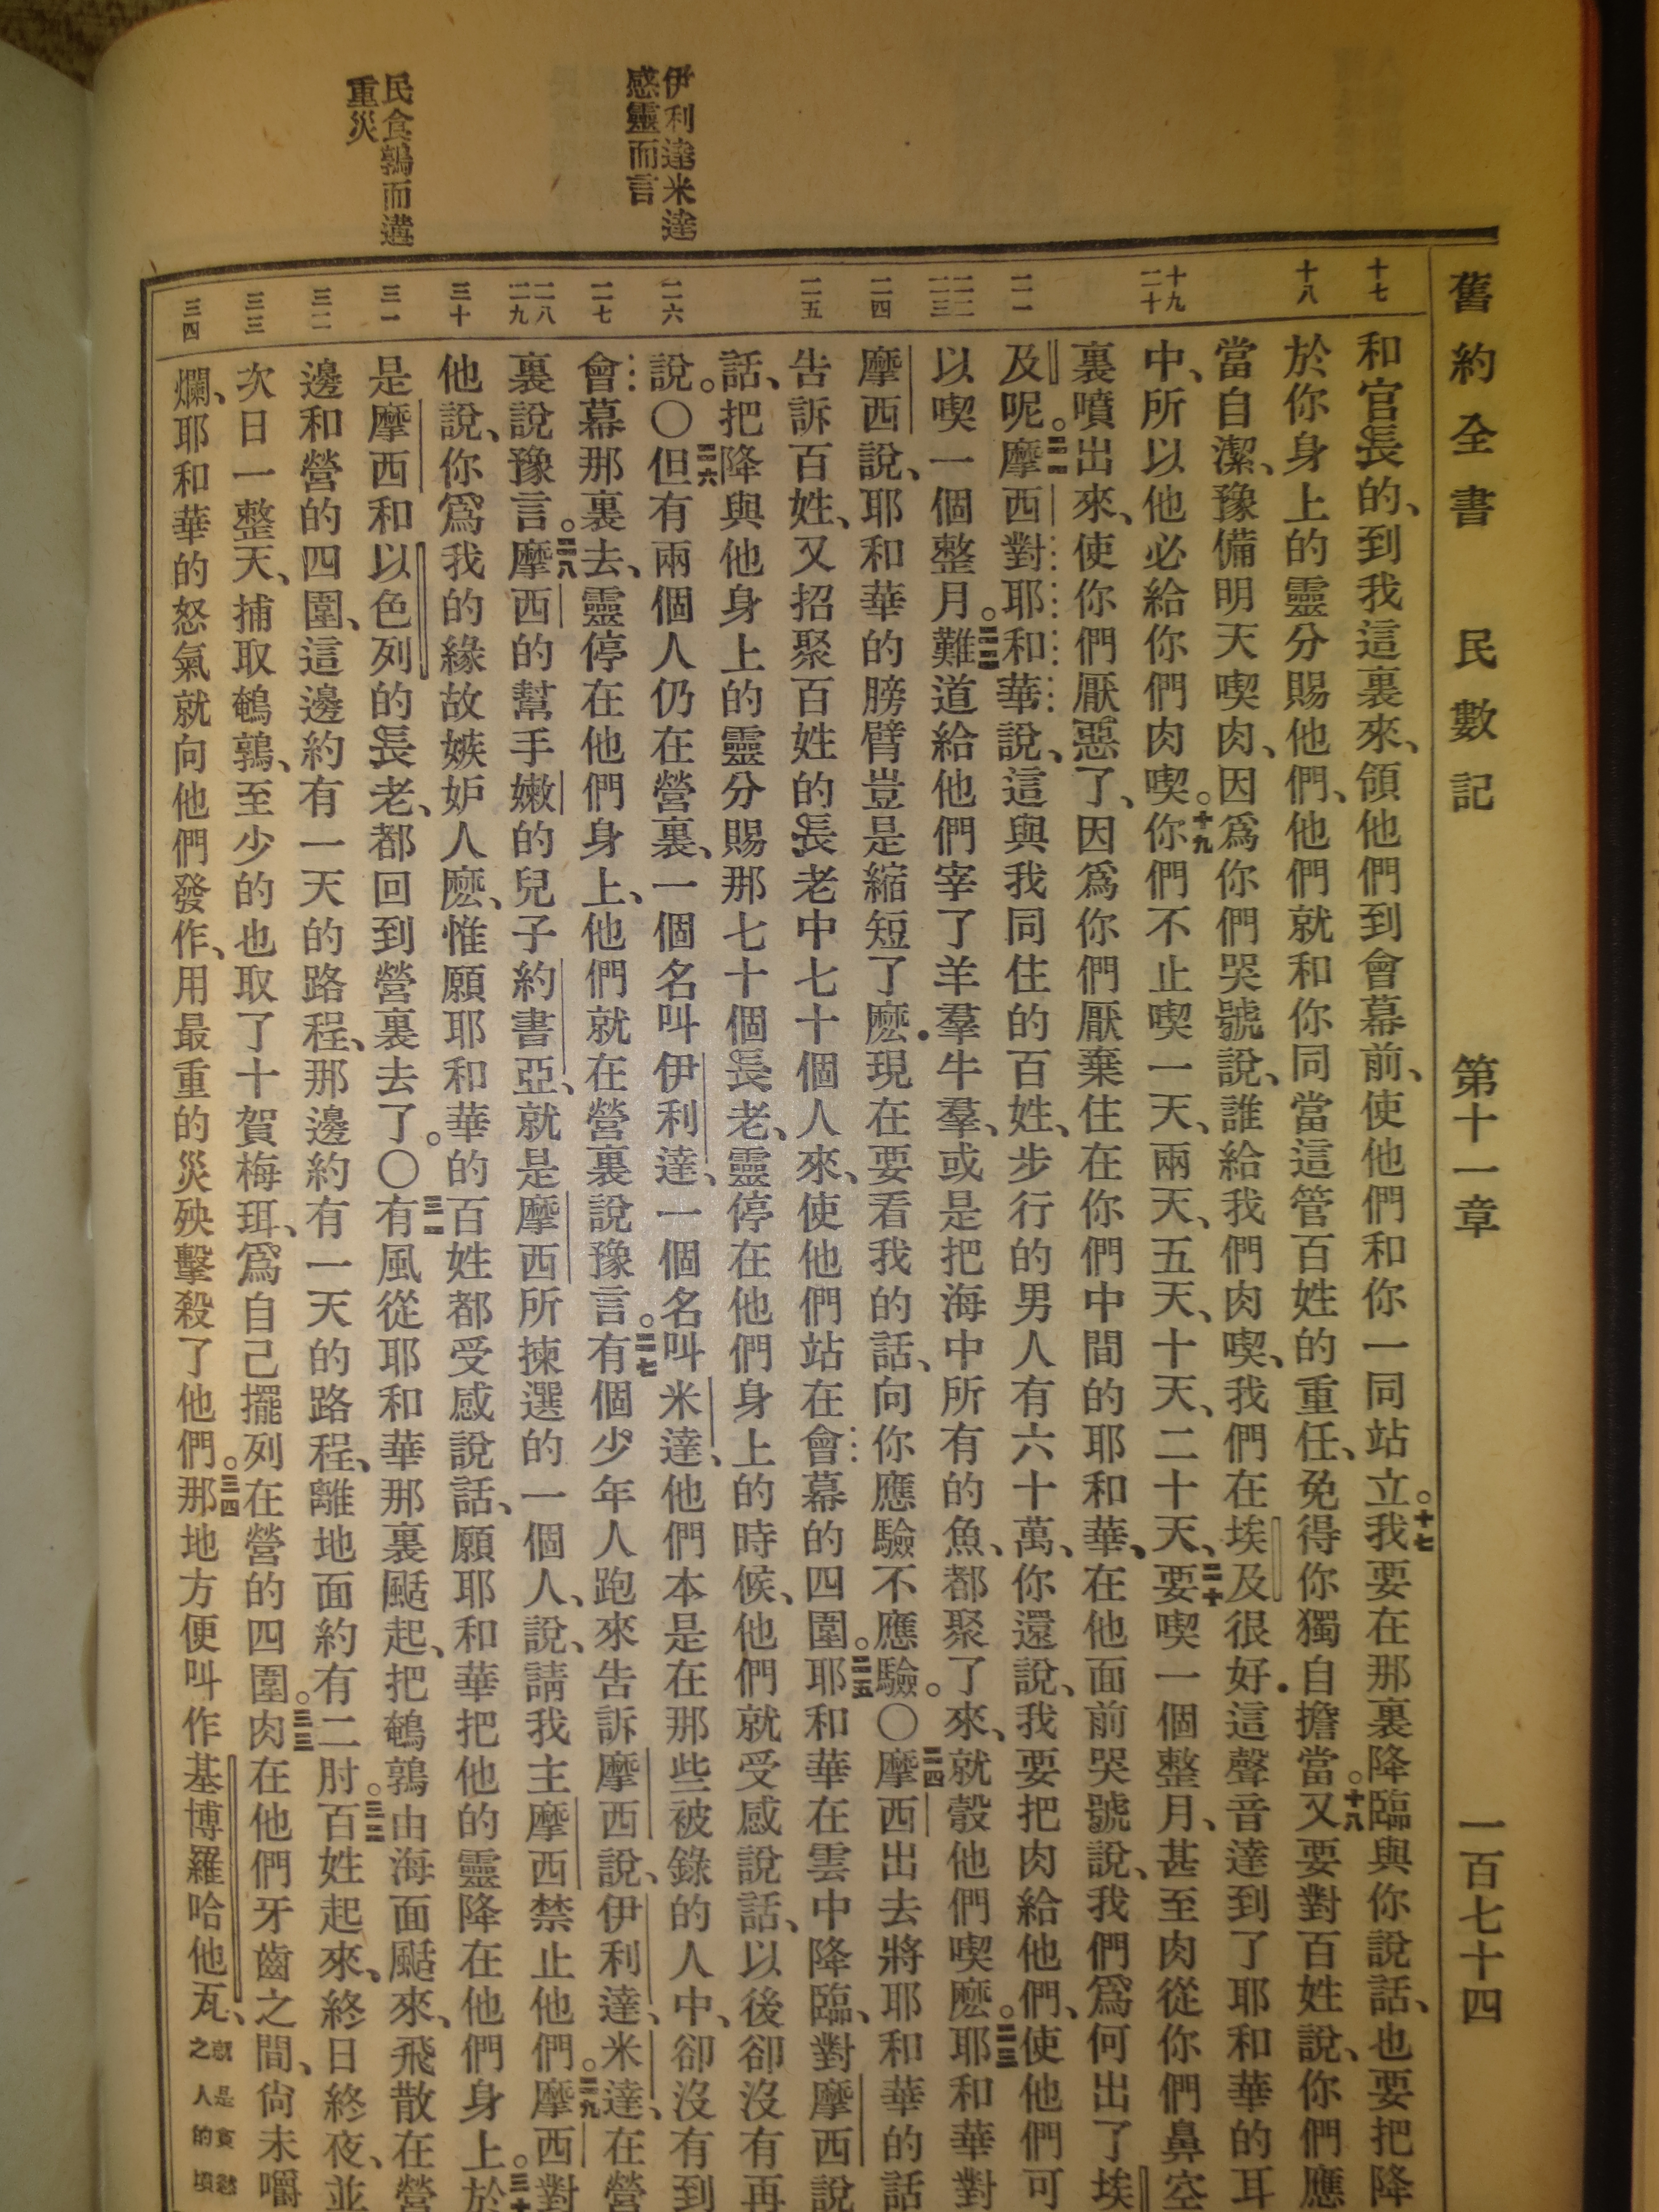 舊約全書　民數記　第十一章　一百七十四
伊利達米達
感靈而言
民食鶉而遘
重災
十七
十八
十九
二十
二一
二二
二三
二四
二五
二六
二七
二八
二九
三十
三一
三二
三三
三四
和官長的、到我這裏來、領他們到會幕前、使他們和你一同站立。十七我要在那裏降臨與你說話、也要把降
於你身上的靈分賜他們、他們就和你同當這管百姓的重任、免得你獨自擔當。十八又要對百姓說、你們應
當自潔、豫備明天喫肉、因爲你們哭號說、誰給我們肉喫、我們在埃及很好．這聲音達到了耶和華的耳
中、所以他必給你們肉喫。十九你們不止喫一天、兩天、五天、十天、二十天、二十要喫一個整月、甚至肉從你們鼻空
裏噴出來、使你們厭惡了、因爲你們厭棄住在你們中間的耶和華、在他面前哭號說、我們爲何出了埃
及呢。二一摩西對耶和華說、這與我同住的百姓、步行的男人有六十萬、你還說、我要把肉給他們、使他們可
以喫一個整月。二二難道給他們宰了羊羣牛羣、或是把海中所有的魚、都聚了來、就彀他們喫麽。二三耶和華對
摩西說、耶和華的膀臂豈是縮短了麽．現在要看我的話、向你應驗不應驗。〇二四摩西出去將耶和華的話
告訴百姓、又招聚百姓的長老中七十個人來、使他們站在會幕的四圍。二五耶和華在雲中降臨、對摩西說
話、把降與他身上的靈分賜那七十個長老、靈停在他們身上的時候、他們就受感說話、以後卻沒有再
說。〇二六但有兩個人仍在營裏、一個名叫伊利達、一個名叫米達、他們本是在那些被錄的人中、卻沒有到
會幕那裏去、靈停在他們身上、他們就在營裏說豫言。二七有個少年人跑來告訴摩西說、伊利達、米達、在營
裏說豫言。二八摩西的幫手嫩的兒子約書亞、就是摩西所揀選的一個人、說、請我主摩西禁止他們。二九摩西對
他說、你爲我的緣故嫉妒人麽、惟願耶和華的百姓都受感說話、願耶和華把他的靈降在他們身上。三十於
是摩西和以色列的長老、都回到營裏去了。〇三一有風從耶和華那裏颳起、把鵪鶉由海面颳來、飛散在營
邊和營的四圍、這邊約有一天的路程、那邊約有一天的路程、離地面約有二肘。三二百姓起來、終日終夜、並
次日一整天、捕取鵪鶉、至少的也取了十賀梅珥、爲自己擺列在營的四圍。三三肉在他們牙齒之間、尙未嚼
爛、耶和華的怒氣就向他們發作、用最重的災殃擊殺了他們。三四那地方便叫作基博羅哈他瓦、